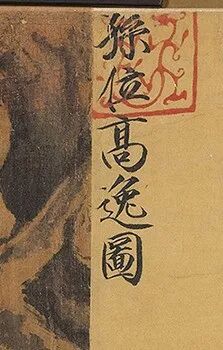 孫位高逸圖